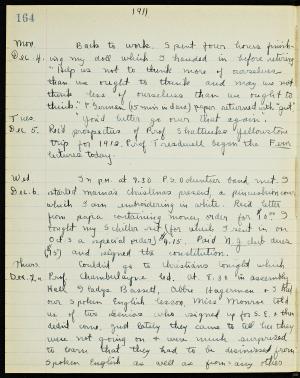 164
1911
Mon. Back to work. Spent four hours finish-
Dec. 4. ing my doll which I handed in before retiring
"Help us not to think more of ourselves
than we ought to think and may we not
think less of ourselves than we ought to
think." German (45 min in class) paper returned with "Gut"
Tues. You'd better go over that again.
Dec. 5. Rec'd prospectus of Prof. Shattuck's Yellowstone
trip for 1912. Prof. Treadwell began the Fern
lectures today.
Wed In p.m. at 4.30 P.S. Volunteer band met. I
Dec. 6. started mama's Christmas present, a pincushion cover
which I am embroidering in white. Rec'd letter
from papa containing money order for $10.00 I
bought my Schiller set (for which I sent in on
Oct 3 a special order) $4.15. Paid N.J. club dues
and signed the constitution.
Thurs. Couldn't go to Christians tonight which
Dec. 7. Prof. Chamberlayne led at 7.30 in assembly
Hall. Gladys Bassett, Abbie Hagerman + I had
our Spoken English lesson. Miss Monroe told
us of two seniors who signed up for S.E. + then
didn't come, and lately they came to tell her they
were not going on + were much surprised
to learn that they had to be dismissed from
Spoken English as well as from any other